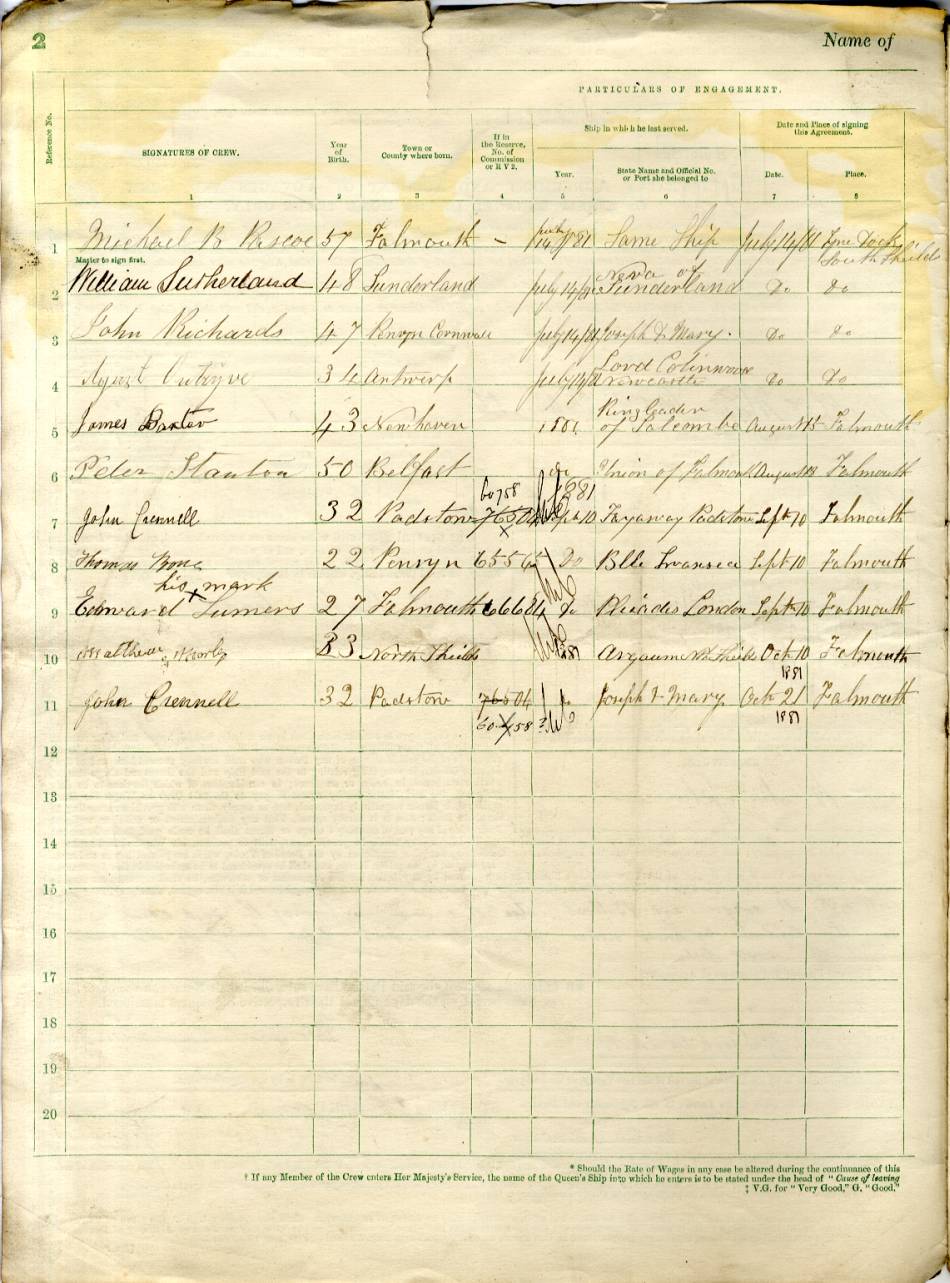 2 Name of
PARTICULARS OF ENGAGEMENT.
Reference No.
SIGNATURES OF CREW.
Year of Birth.
Town or County where born.
If in the Reserve, No. of Commission or R V 2.
Ship in which he last served.
Year.
State Name and Official No. or Port she belonged to
Date and Place of signing this Agreement.
Date.
Place.
1 2 3 4 5 6 7 8
1 Michael R Pascoe 57 Falmouth – July 14/81 Same Ship July 14/81 Tyne Dock South Shields
Master to sign first.
2 William Sutherland 48 Sunderland July 14/81 Neva of Sunderland Do Do
3 John Richards 47 Penryn Cornwall July 14/81 Joseph & Mary. Do Do
4 34 Antwerp July 14/81 Lord Newcastle Do Do
5 James Baxter 43 Newhaven 1881 Ringleader of Salcombe August 15 Falmouth
6 Peter Stanton 50 Belfast do Union of Falmouth August Falmouth
1881
60758
7 John Crennell 32 Padstow 76504 Sept 10 Padstow Sept 10 Falmouth
8 Thomas 22 Penryn Do Swansea Sept 10 Falmouth
his x mark
9 Edward Sumers 27 Falmouth Do Pleiades London Sept 10 Falmouth
10 Matthew 33 North Shields 1881 Shields Oct 10 1881 Falmouth
11 John Crennell 32 Padstow 76504 Do Joseph & Mary Oct 21 1881 Falmouth
60758
12
13
14
15
16
17
18
19
20
* Should the Rate of Wages in any case be altered during the continuance of this
† If any Member of the Crew enters Her Majesty's Service, the name of the Queen's Ship into which he enters is to be stated under the head of "Cause of leaving
‡ V.G. for "Very Good," G. "Good,"